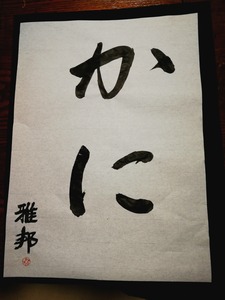 かに
雅邦